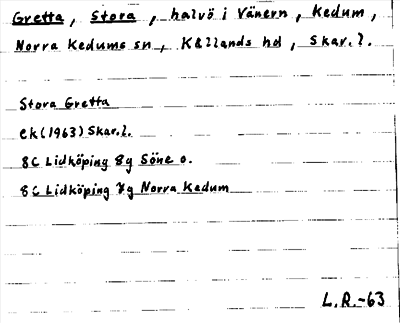 Gretta, Stora, halvö i Vänern, Kedum,
Norra Kedums sn, Kållands hd, Skar.l.
Stora Gretta
ek (1963) Skar.l.
8C Lidköping 8g Söne o.
8C Lidköping 8g Norra Kedum
L.R.-63